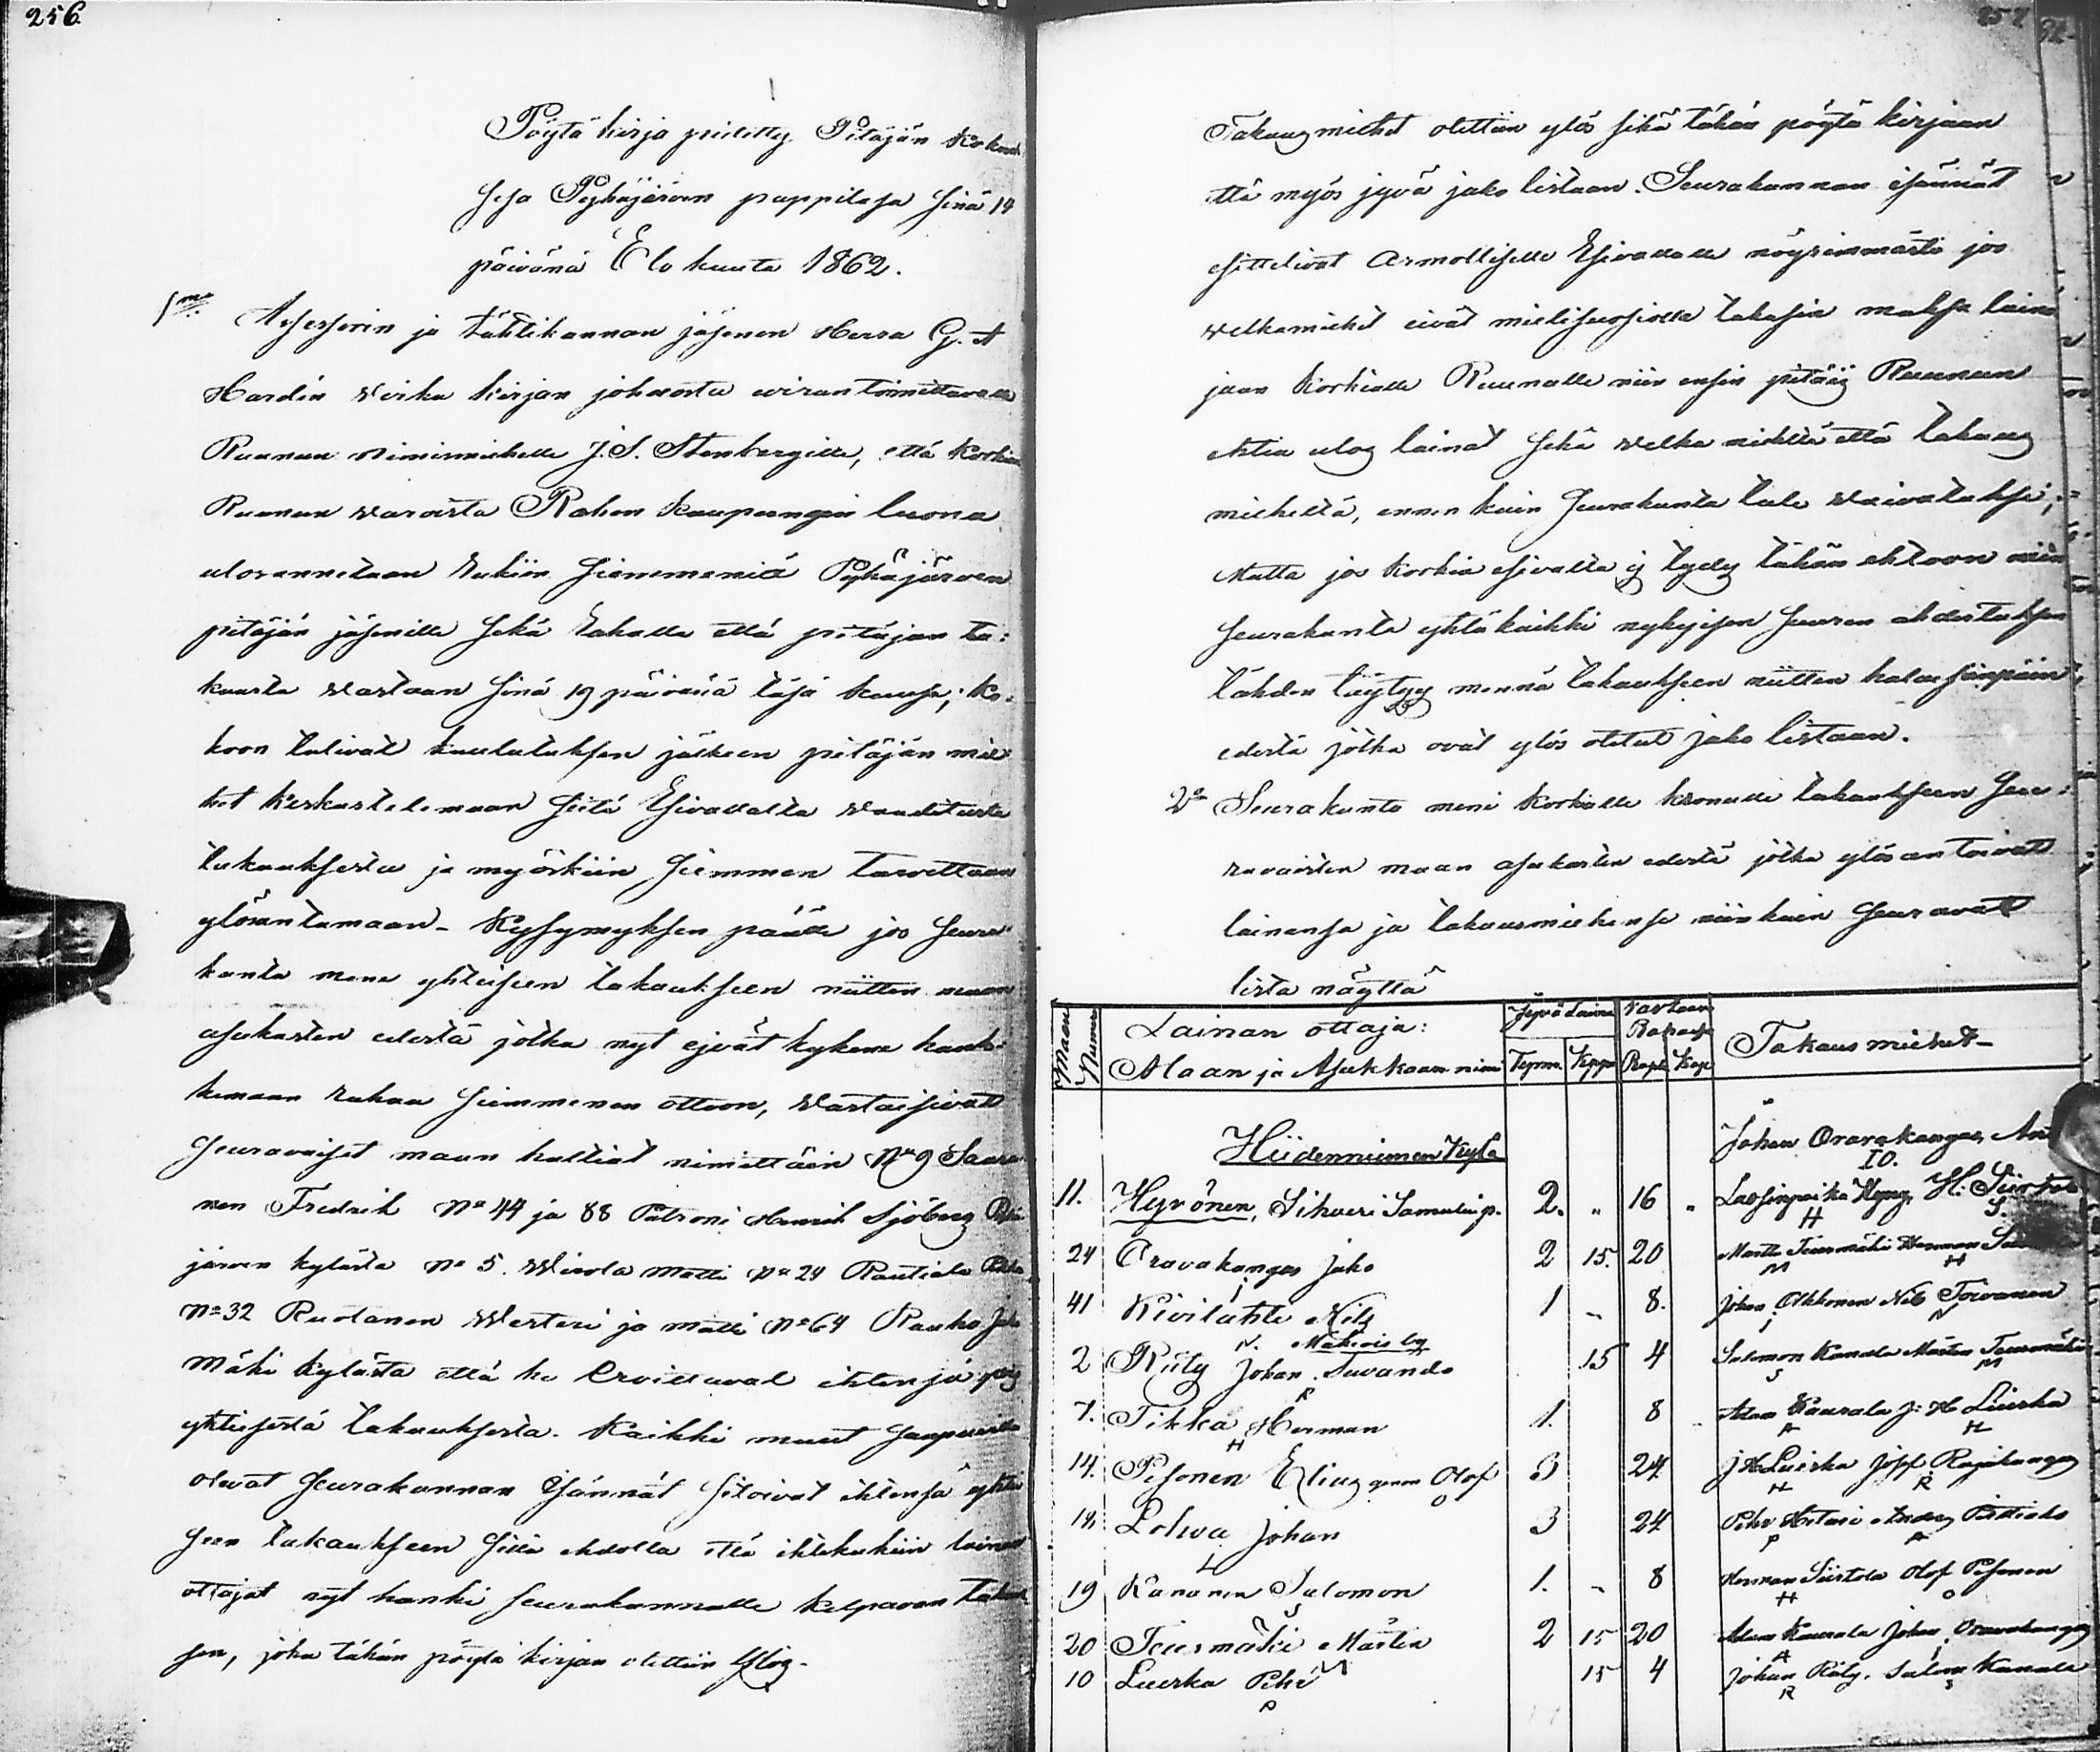 256.
Pöytä kirja pidetty Pitäjän Kokouk
sesa Pyhäjärven pappilasa sinä 14
päivänä Elo kuuta 1862.
1mo
Assessorin ja Lähtikunnan jäsenen Herra G. A
Hardin Virka kirjan johdosta wirantoimittavalle
Ruunun Nimismiehelle J. S. Stenbergille, että Korkian
Ruunun varoista Rahen Kaupungin luona
ulosannetaan Rukiin Siemmeniä Pyhäjärven
pitäjän jäsenille sekä Rahalla että pitäjän ta:
kausta vastaan sinä 19 päivänä täsä kuusa; Ko-
koon tulivat kuulutuksen jälkeen pitäjän mie
het Keskustelemaan siitä Esivallalta vaaditusta
takauksesta ja myöskiin siemmen tarvettaan
ylösantamaan - Kysymyksen päälle jos seura
kunta mene yhteiseen takaukseen niitten maan
asukasten edestä jotka nyt ejvät kykene hank-
kimaan rahaa siemmenen ottoon, vastaisivat
seuravaiset maan haltiat nimittäin No 9 Saara
nen Fredrik No 44 ja 88 Patroni Henrik Sjöberg
järven kylästä No 5. Wirola Matti No 24 Rautiola
No 32 Ruotanen Westeri ja Matti No 64 Rauho
Mäki kylästä että he Eroittavat ihtensä pois
yhteisestä takauksesta. Kaikki muut saapuvilla
olevat seurakunnan Isännät sitoivat ihtensä yhtei
seen takaukseen sillä ehdolla että ihtekukiin lainan
ottajat nyt hankki seurakunnalle kelpavan takauk
sen, joka tähän pöytä kirjan otettiin Ylös.
257
Takausmiehet otettiin ylös sekä tähän pöytä kirjaan
että myös jyvä jako listaan. Seurakunnan isännät
esittelivät Armolliselle Esivallalle nöyrimmästi jos
velkamiehet eivät mielisuosiolla takasin maksa laino
jaan Korkialle Ruunalle niin ensin pitäis Ruunun
ehtiä ulos lainat sekä velka miehiltä että takaus
miehiltä, ennen kuin seurakunta tule vaivatuksi;
Mutta jos Korkia esivalta ej tydy tähän ehtoon niin
seurakunta yhtäkaikki nykyisen suuren ahdistuksen
tähden täytyy mennä takaukseen niitten
edestä jotka ovat ylös otetut jako listaan.
2o Seurakunta meni Korkialle kronulle takaukseen seu:
ravaisten maan asukasten edestä jotka ylösantoivat
lainansa ja takausmiehensä niin kuin seuravat
lista näyttä
Maan Numro
Lainan ottaja:
Maan ja Asukkaan nimi
Jyvä Laina
Tynn. Kppa
Vastaan Rahasa
Rupl Kop
Takaus miehet -
Hiidenniemen Kylä
Johan Oravakangas,
IO.
11. Hyvönen, Sihveri Samulinp. 2. " 16 " Lassinpoika Hyng, H: Siirtola
H S.
24 Oravakangas Jako 2 15. 20 Matts Teiermäki Herman
J M H
41 Kivilahti Nils 1 - 8. Johan Okkonen Nils Toivanen
N. J N
Mäkeis by
2 Räty Johan. Suvando 15 4 Salomon Kanala Mårten Teiermäki
R S M
7. Tikka Herman 1. 8 Adam Kaurala J: H Lieska
H A H
14. Pesonen Elias Olof 3 24. J H Lieska Jopp Rajakangas
O H R
14. Lohva Johan 3 24 Pehr Anders
L P A
19 Kananen Salomon 1. - 8 Herman Siirtola Olof Pesonen
S H O
20 Teiermäki Mårten 2 15 20 Adam Kaurala Johan Oravakangas
M A J
10 Lieska Pehr 15 4 Johan Räty. Salom Kanala
P R S